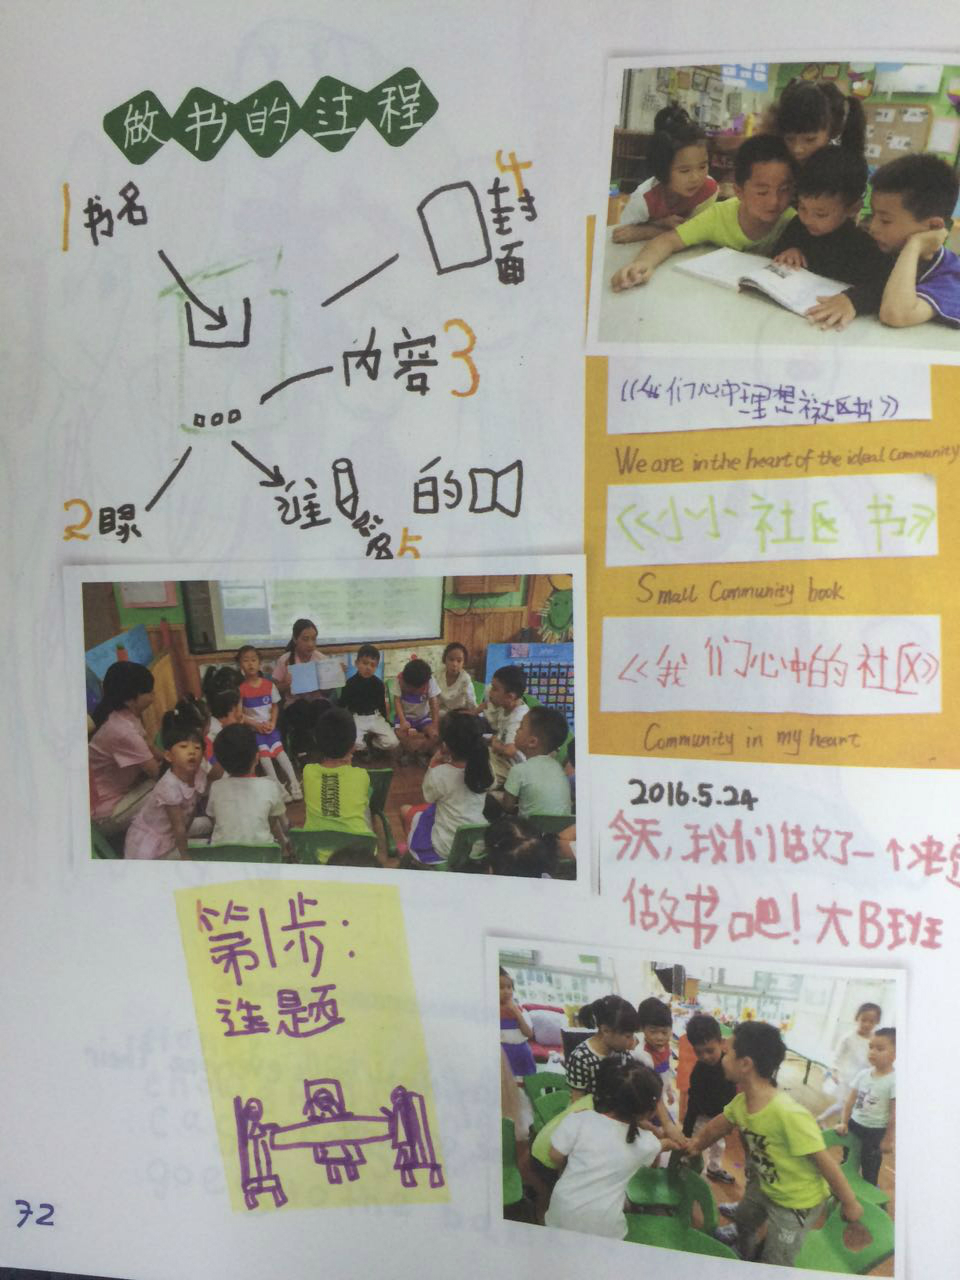 做书的过程
1书名
4封面
内容3
谁 的
2目录
5
《我们心中理想社区书》
We are in the heart of the ideal Community
《小小社区书》
Small Community book
《我们心中的社区》
Community in my heart
2016.5.24
今天,我们做好了一个决
做书吧!大B班
第1步:
选题
72